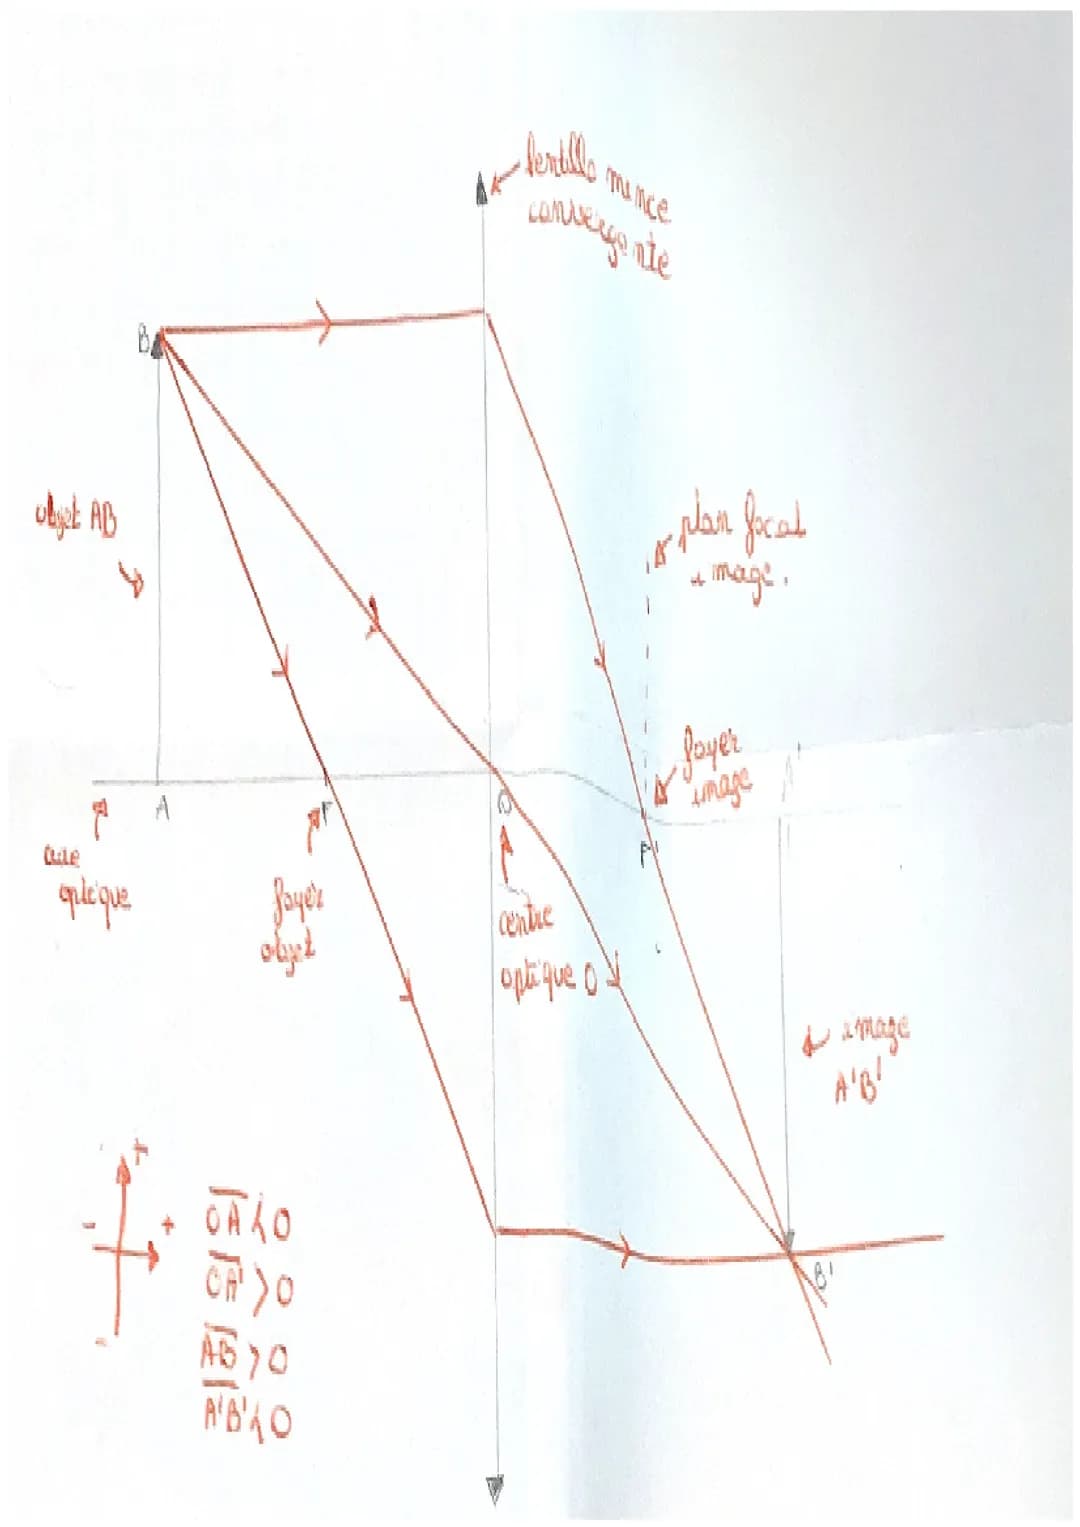 lentille mince
convergente
B
objet AB
plan focal
image.
foyer
image
A'
A
F
O
F'
axe
optique
foyer
objet
centre
optique O
image
A'B'
+
-
+
-
OA < 0
OA' > 0
AB > 0
A'B' < 0
B'